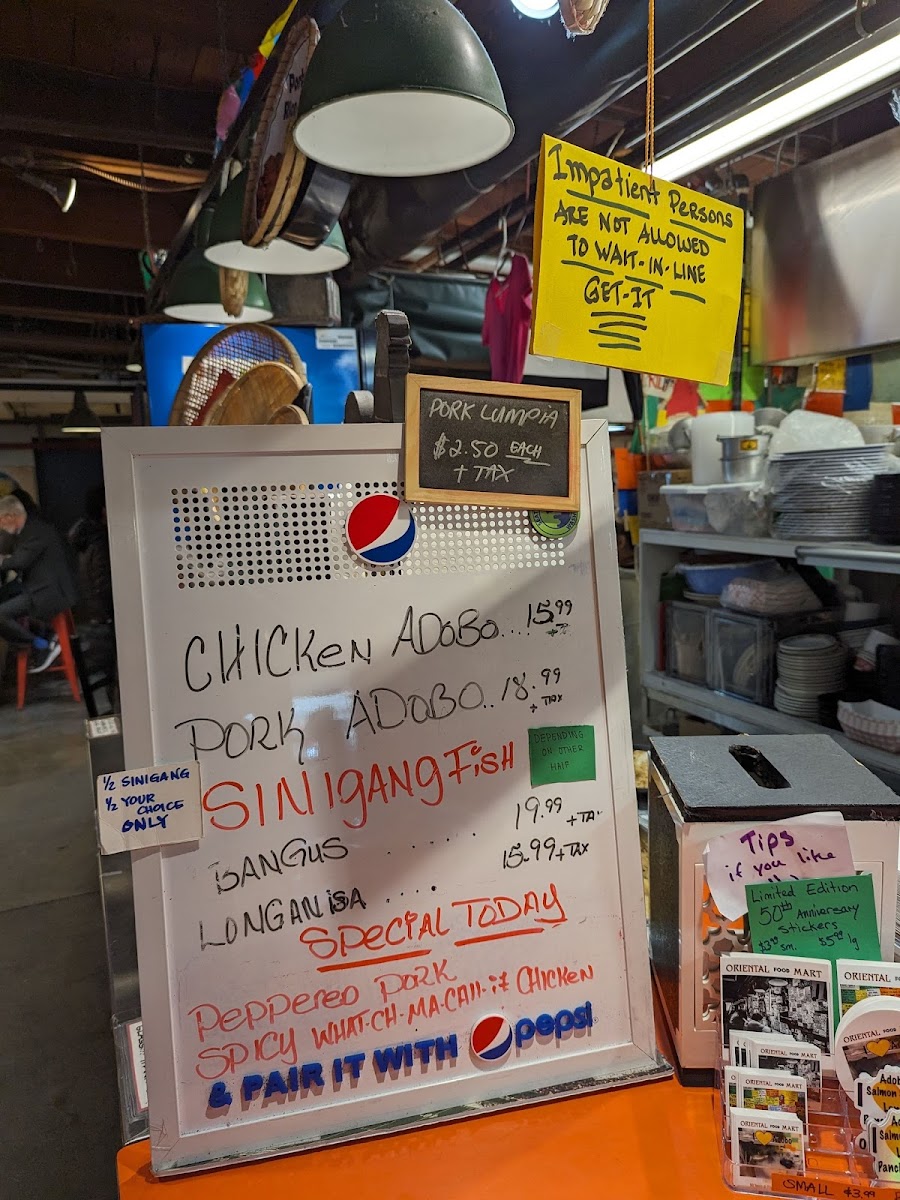 Impatient Persons
ARE NOT ALLOWED
TO WAIT-IN-LINE
GET-IT
PORK LUMPIA
$2.50 EACH
+ TAX
CHICKEN ADOBO....15.99
PORK ADOBO..18.99
+ TAX
SINIGANG FISH
DEPENDING
ON OTHER
HALF
½ SINIGANG
½ YOUR
CHOICE
ONLY
BANGUS ...... 19.99 +TA
LONGANISA .... 15.99+TAX
SPECIAL TODAY
PEPPERED PORK
SPICY WHAT-CH-MA-CALL-it CHICKEN
& PAIR IT WITH pepsi
Tips
if you like
Limited Edition
50th Anniversary
Stickers
$3.99 sm. $5.99 lg
ORIENTAL FOOD MART
ORIENTAL FOOD
ORIENTAL
ORIENTAL FOOD MART
ORIENTAL FOOD MART
Adob
Salmon
Salmon
Panci
SMALL $3.99